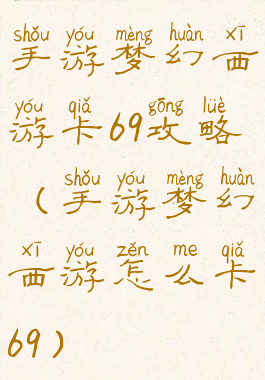 shǒu yóu mèng huàn xī
手游梦幻西
yóu qiǎ gōng lüè
游卡69攻略
shǒu yóu mèng huàn
（手游梦幻
xī yóu zěn me qiǎ
西游怎么卡
69）